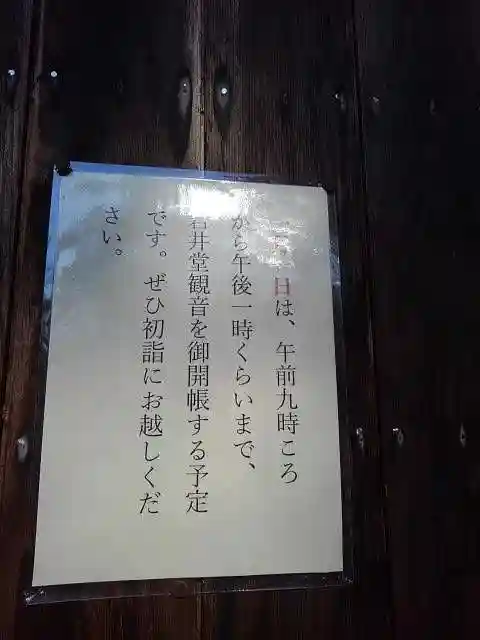 日は、午前九時ころ
から午後一時くらいまで、
岩井堂観音を御開帳する予定
です。ぜひ初詣にお越しくだ
さい。